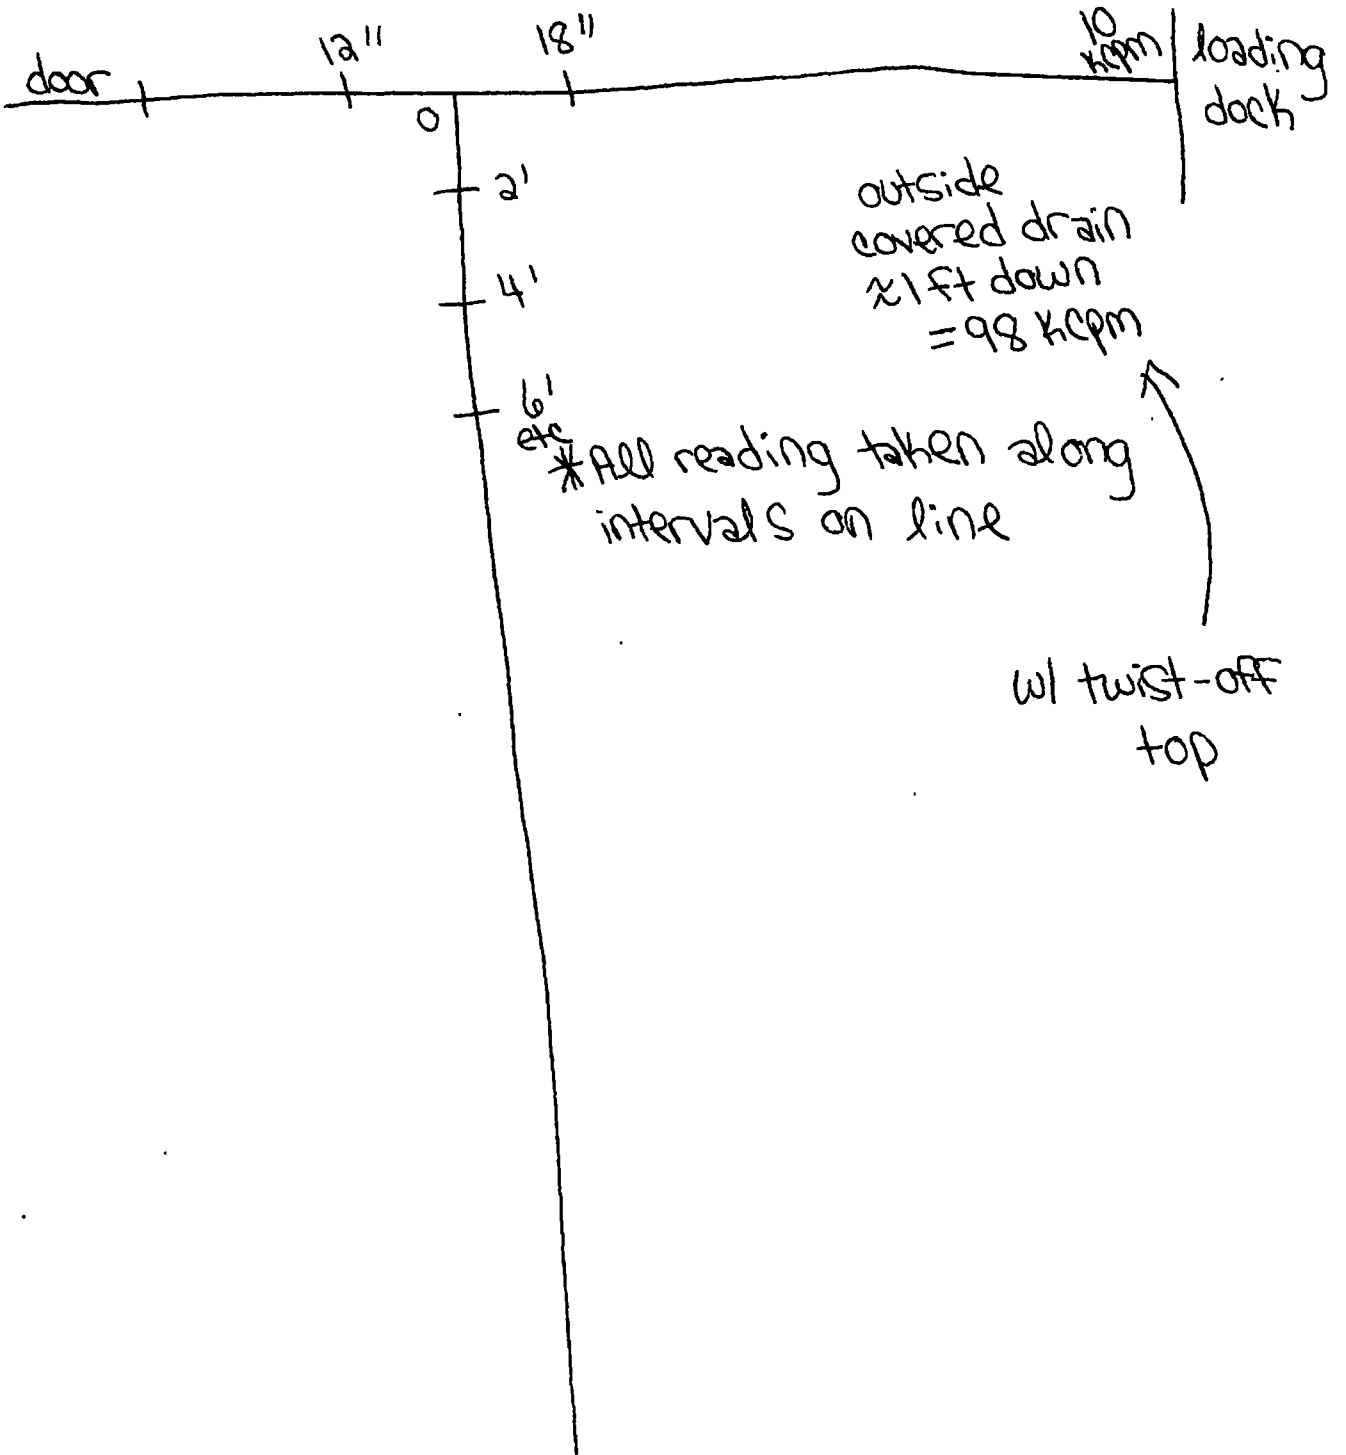 door
12"
18"
10
kcpm
loading
dock
0
2'
4'
6'
etc
outside
covered drain
≈1 ft down
= 98 kcpm
*All reading taken along
intervals on line
w/ twist-off
top